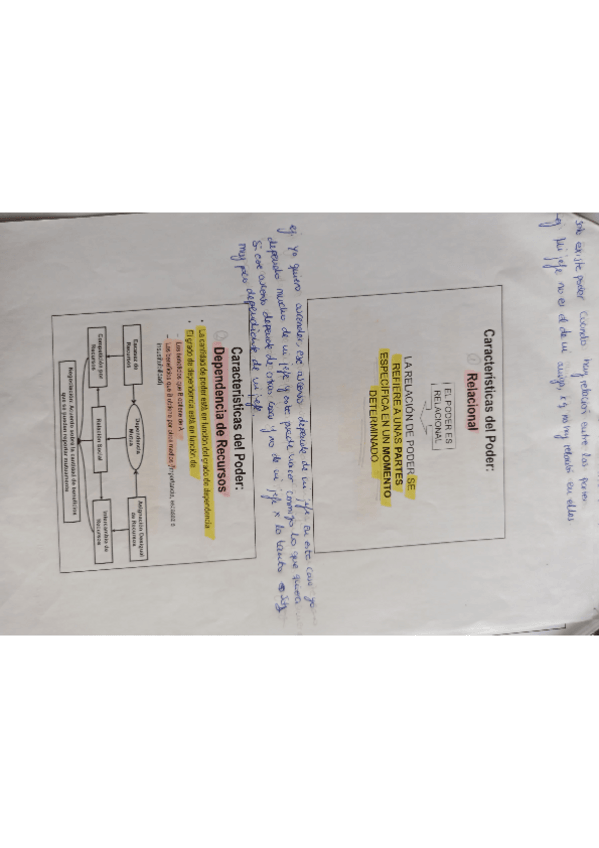 solo existe poder cuando hay relación entre las personas
ej Mi jefe no es el de mi amiga x q no hay relación en ellas
Características del Poder:
Relacional
EL PODER ES
RELACIONAL
LA RELACIÓN DE PODER SE
REFIERE A UNAS PARTES
ESPECÍFICA EN UN MOMENTO
DETERMINADO
ej Yo quiero ascender, ese ascenso depende de mi jefe en este caso yo
dependo mucho de mi jefe y este puede hacer conmigo lo que quiera
Si ese ascenso depende de otras cosas y no de mi jefe x lo tanto
muy poco dependiente de mi jefe
Características del Poder:
Dependencia de Recursos
• La cantidad de poder está en función del grado de dependencia
• El grado de dependencia está en función de:
– Los beneficios que B obtiene de A
– Los beneficios que B obtiene por otros medios (Importancia, escasez e
insustituibilidad)
Escasez de
Recursos
Dependencia
Mutua
Asignación Desigual
de Recursos
Competición por
Recursos
Relación Social
Intercambio de
Recursos
Negociación: Acuerdo sobre la cantidad de beneficios
que se pueden reportar mutuamente